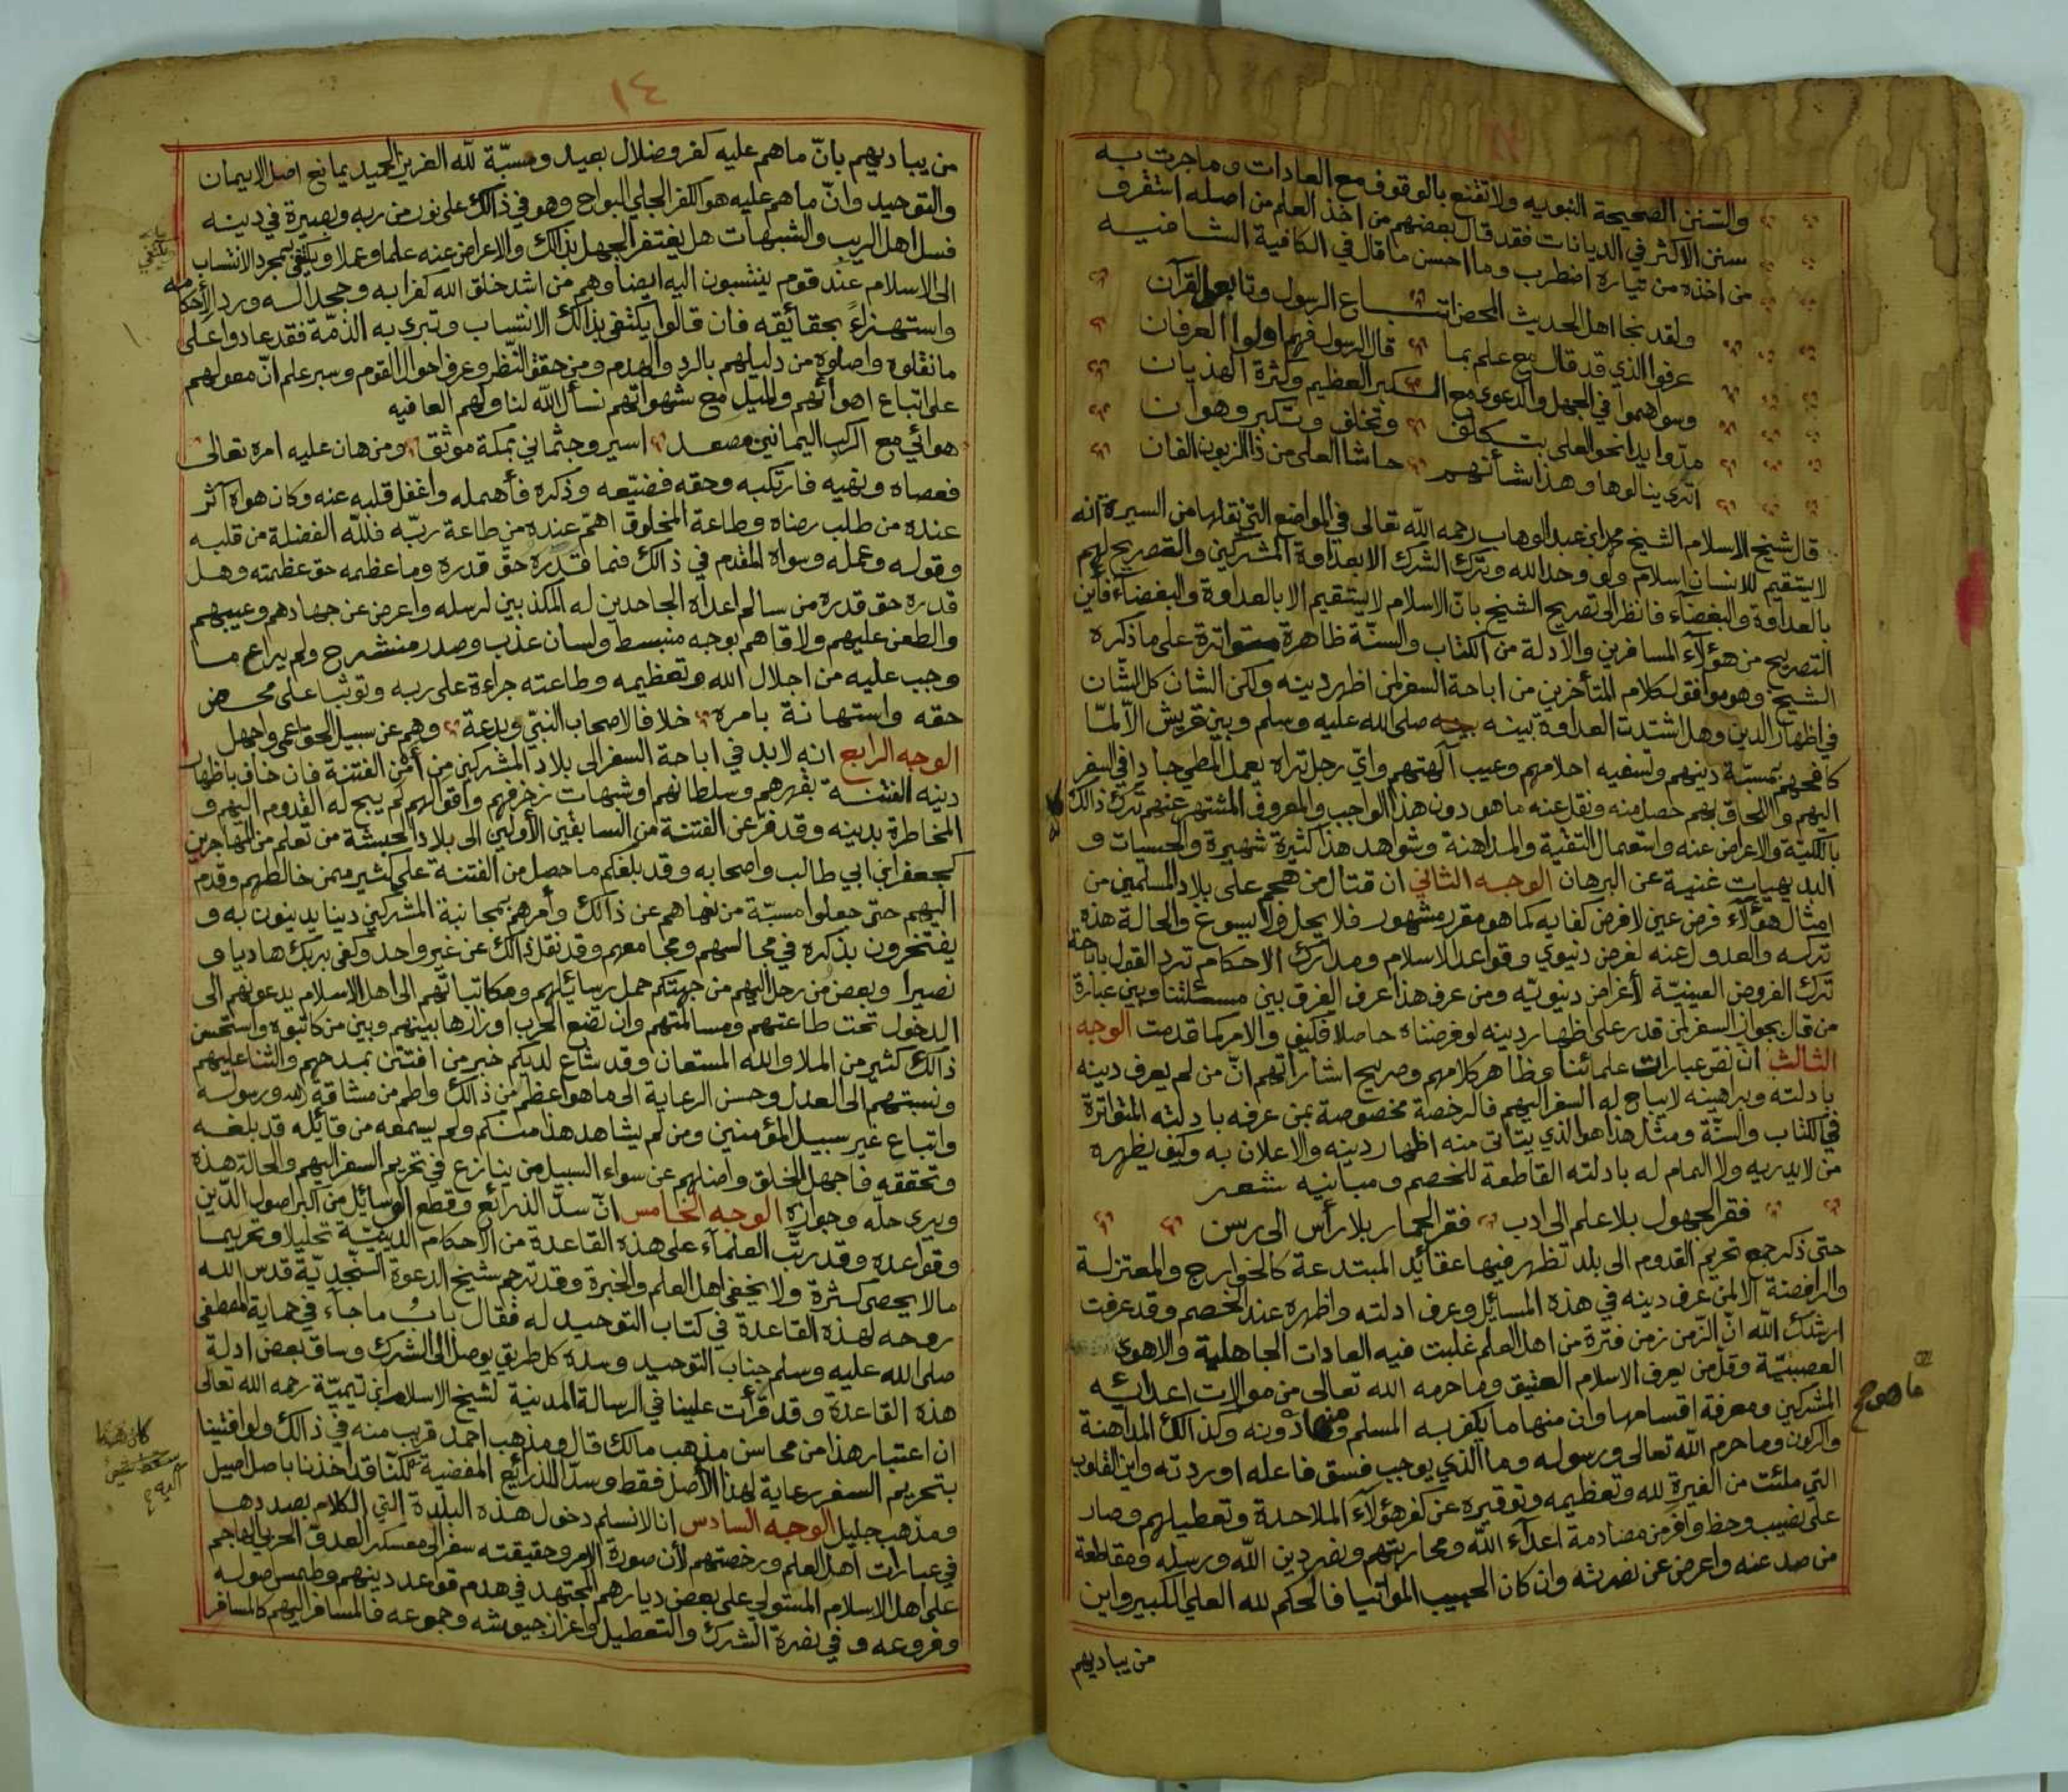 والسنن الصحيحة النبويه ولا تقنع بالوقوف مع العادات وما جرت به
سنن الاكثر في الديانات فقد قال بعضهم من اخذ العلم من اصله استقرف
من اخذه من تياره اضطرب وما احسن ما قال في الكافية الشافيه
ولقد نجا اهل الحديث المحض اتباع الرسول وتابعوا القرآن
عرفوا الذي قد قال مع علم بما قال الرسول فهم اولوا العرفان
وسواهموا في الجهل والدعوى مع الكبر العظيم وكثرة الهذيان
مدّوا يدا نحو العلى بتكلف وتخلف وتكبر وهوان
اترى ينالوها وهذا شأنهم حاشا العلى من ذا الزبون الفان
قال شيخ الاسلام الشيخ محمد ابن عبد الوهاب رحمه الله تعالى في المواضع التي نقلها من السيرة انه
لا يستقيم للانسان اسلام ولو وحد الله وترك الشرك الا بعداوة المشركين والتصريح لهم
بالعداوة والبغضآء فانظر الى تصريح الشيخ بانّ الاسلام لا يستقيم الا بالعداوة والبغضاء فأين
التصريح من هؤلآء المسافرين والادلة من الكتاب والسنّة ظاهرة متواترة على ما ذكره
الشيخ وهو موافق لكلام المتأخرين من اباحة السفر لمن اظهر دينه ولكن الشان كل الشان
في اظهار الدين وهل اشتدت العداوة بينه صلى الله عليه وسلم وبين قريش الّا لمّا
كافحهم بمسبّة دينهم وتسفيه احلامهم وعيب آلهتهم وايّ رجل تراه يعمل المطي جادا في السفر
اليهم واللحاق بهم حصل منه ونقل عنه ما هو دون هذا الواجب والمعروف المشتهر عنهم ترك ذالك
بالكلّية والاعراض عنه واستعمال التقيّة والمداهنة وشواهد هذا كثيرة شهيرة والحسيات و
البديهيات غنية عن البرهان الوجه الثاني ان قتال من هجم على بلاد المسلمين من
امثال هؤلآء فرض عين لا فرض كفايه كما هو مقرر مشهور فلا يحل ولا يسوغ والحالة هذه
تركه والعدول عنه لغرض دنيوي وقواعد الاسلام ومدارك الاحكام ترد القول باباحة
ترك الفروض العينيّة لأغراض دنيويّه ومن عرف هذا عرف الفرق بين مسئلتنا وبين عبارة
من قال بجواز السفر لمن قدر على اظهار دينه لو فرضناه حاصلا فكيف والامر كما قدمت الوجه
الثالث ان نص عبارات علمائنا وظاهر كلامهم وصريح اشاراتهم انّ من لم يعرف دينه
بادلته وبراهينه لا يباح له السفر اليهم فالرخصة مخصوصة بمن عرفه بادلته المتواترة
في الكتاب والسنّة ومثل هذا هو الذي يتأتى منه اظهار دينه والاعلان به وكيف يظهره
من لا يدريه ولا المام له بادلته القاطعة للخصم ومبانيه شعر
فقر الجهول بلا علم الى ادب فقر الحمار بلا رأس الى رسن
حتى ذكر جمع تحريم القدوم الى بلد تظهر فيها عقائد المبتدعة كالخوارج والمعتزلة
والرافضة الّا لمن عرف دينه في هذه المسائل وعرف ادلته واظهره عند الخصم وقد عرفت
ارشدك الله انّ الزّمن زمن فترة من اهل العلم غلبت فيه العادات الجاهلية والاهوى
العصبيّة وقل من يعرف الاسلام العتيق وما حرمه الله تعالى من موالات اعدائه
المشركين ومعرفة اقسامها وان منها ما يكفر به المسلم ومنها دونه وكذالك المداهنة
والركون وما حرم الله تعالى ورسوله وما الذي يوجب فسق فاعله او ردته واين القلوب
التي ملئت من الغيرة لله وتعظيمه وتوقيره عن كفر هؤلآء الملاحدة وتعطيلهم وصار
على نصيب وحظ وافر من مصادمة اعدآء الله ومحاربتهم ونصر دين الله ورسله ومقاطعة
من صد عنه واعرض عن نصرته وان كان الحبيب المواتيا فالحكم لله العلي الكبير واين
من يباديهم
ما هو
١٤
من يباديهم بانّ ما هم عليه كفر وضلال بعيد ومسبّة للّه العزيز الحميد يمانع اصل الايمان
والتوحيد وانّ ما هم عليه هو الكفر الجلي البواح وهو في ذالك على نور من ربه وبصيرة في دينه
فسل اهل الريب والشبهات هل يغتفر الجهل بذالك والاعراض عنه علما وعملا ويكتفى بمجرد الانتساب
الى الاسلام عند قوم ينتسبون اليه ايضا وهم من اشد خلق الله كفرا به وجحدا له ورد لأحكامه
واستهزاءً بحقائقه فان قالوا يكتفى بذالك الانتساب وتبرى به الذمّة فقد عادوا على
ما نقلوه واصلوه من دليلهم بالرد والهدم ومن حقق النّظر وعرف احوال القوم وسبر علم انّ معولهم
على اتباع اهوائهم والميل مع شهواتهم نسأل اللّه لنا ولهم العافيه
هوائي مع الركب اليمانين مصعد اسير وجثماني بمكة موثق ومن هان عليه امره تعالى
فعصاه ونهيه فارتكبه وحقه فضيّعه وذكره فأهمله واغفل قلبه عنه وكان هواه آثر
عنده من طلب رضاه وطاعة المخلوق اهمّ عنده من طاعة ربّه فللّه الفضلة من قلبه
وقوله وعمله وسواه المقدم في ذالك فما قدره حق قدره وما عظمه حق عظمته وهل
قدره حق قدره من سالم اعداه الجاحدين له المكذبين لرسله واعرض عن جهادهم وعيبهم
والطعن عليهم ولاقاهم بوجه منبسط ولسان عذب وصدر منشرح ولم يراع ما
وجب عليه من اجلال الله وتعظيمه وطاعته جراءة على ربه وتوثبا على محض
حقه واستهانة بامره خلافا لاصحاب النبيّ وبدعة وهم عن سبيل الحق اعمى واجهل
الوجه الرابع انه لا بد في اباحة السفر الى بلاد المشركين من أمن الفتنة فان خاف باظهار
دينه الفتنة بقهرهم وسلطانهم او شبهات زخرفهم واقوالهم لم يبح له القدوم اليهم و
المخاطرة بدينه وقد فرّ عن الفتنة من السابقين الأولين الى بلاد الحبشة من تعلم من المهاجرين
كجعفر ابن ابي طالب واصحابه وقد بلغكم ما حصل من الفتنة على كثير ممن خالطهم وقدم
اليهم حتى جعلوا مسبّة من نهاهم عن ذالك وأمرهم بمجانبة المشركين دينا يدينون به و
يفتخرون بذكره في مجالسهم ومجامعهم وقد نقل ذالك عن غير واحد وكفى بربك هاديا و
نصيرا وبعض من رحل اليهم من جهتكم حمل رسائلهم ومكاتباتهم الى اهل الاسلام يدعونهم الى
الدخول تحت طاعتهم ومسالمتهم وان تضع الحرب اوزارها بينهم وبين من كاتبوه واستحسن
ذالك كثير من الملا والله المستعان وقد شاع لديكم خبر من افتتن بمدحهم والثنا عليهم
ونسبتهم الى العدل وحسن الرعاية الى ما هو اعظم من ذالك واطم من مشاقة الله ورسوله
واتباع غير سبيل المؤمنين ومن لم يشاهد هذا منكم ولم يسمعه من قائله قد بلغه
وتحققه فاجهل الخلق واضلهم عن سواء السبيل من ينازع في تحريم السفر اليهم والحالة هذه
ويرى حلّه وجوازه الوجه الخامس انّ سدّ الذرائع وقطع الوسائل من اكبر اصول الدّين
وقواعده وقد رتّب العلمآء على هذه القاعدة من الاحكام الدينيّة تحليلا وتحريما
ما لا يحصى كثرة ولا يخفى اهل العلم والخبرة وقد ترجم شيخ الدعوة النّجديّة قدس الله
روحه لهذه القاعدة في كتاب التوحيد له فقال باب ما جآء في حماية المصطفى
صلى الله عليه وسلم جناب التوحيد وسده كل طريق يوصل الى الشرك وساق بعض ادلة
هذه القاعدة وقد قرأت علينا في الرسالة المدنية لشيخ الاسلام ابن تيميّة رحمه الله تعالى
ان اعتبار هذا من محاسن مذهب مالك قال ومذهب احمد قريب منه في ذالك ولو افتينا
بتحريم السفر رعاية لهذا الأصل فقط وسدّ الذرائع المفضية لكنّا قد اخذنا باصل اصيل
ومذهب جليل الوجه السادس انا لا نسلم دخول هذه البلدة التي الكلام بصددها
في عبارات اهل العلم ورخصتهم لأن صورة الامر وحقيقته سفر الى معسكر العدوّ الحربي الهاجم
على اهل الاسلام المستولي على بعض ديارهم المجتهد في هدم قواعد دينهم وطمس اصوله
وفروعه و في نصرة الشرك والتعطيل واعزاز جيوشه وجموعه فالمسافر اليهم كالمسافر